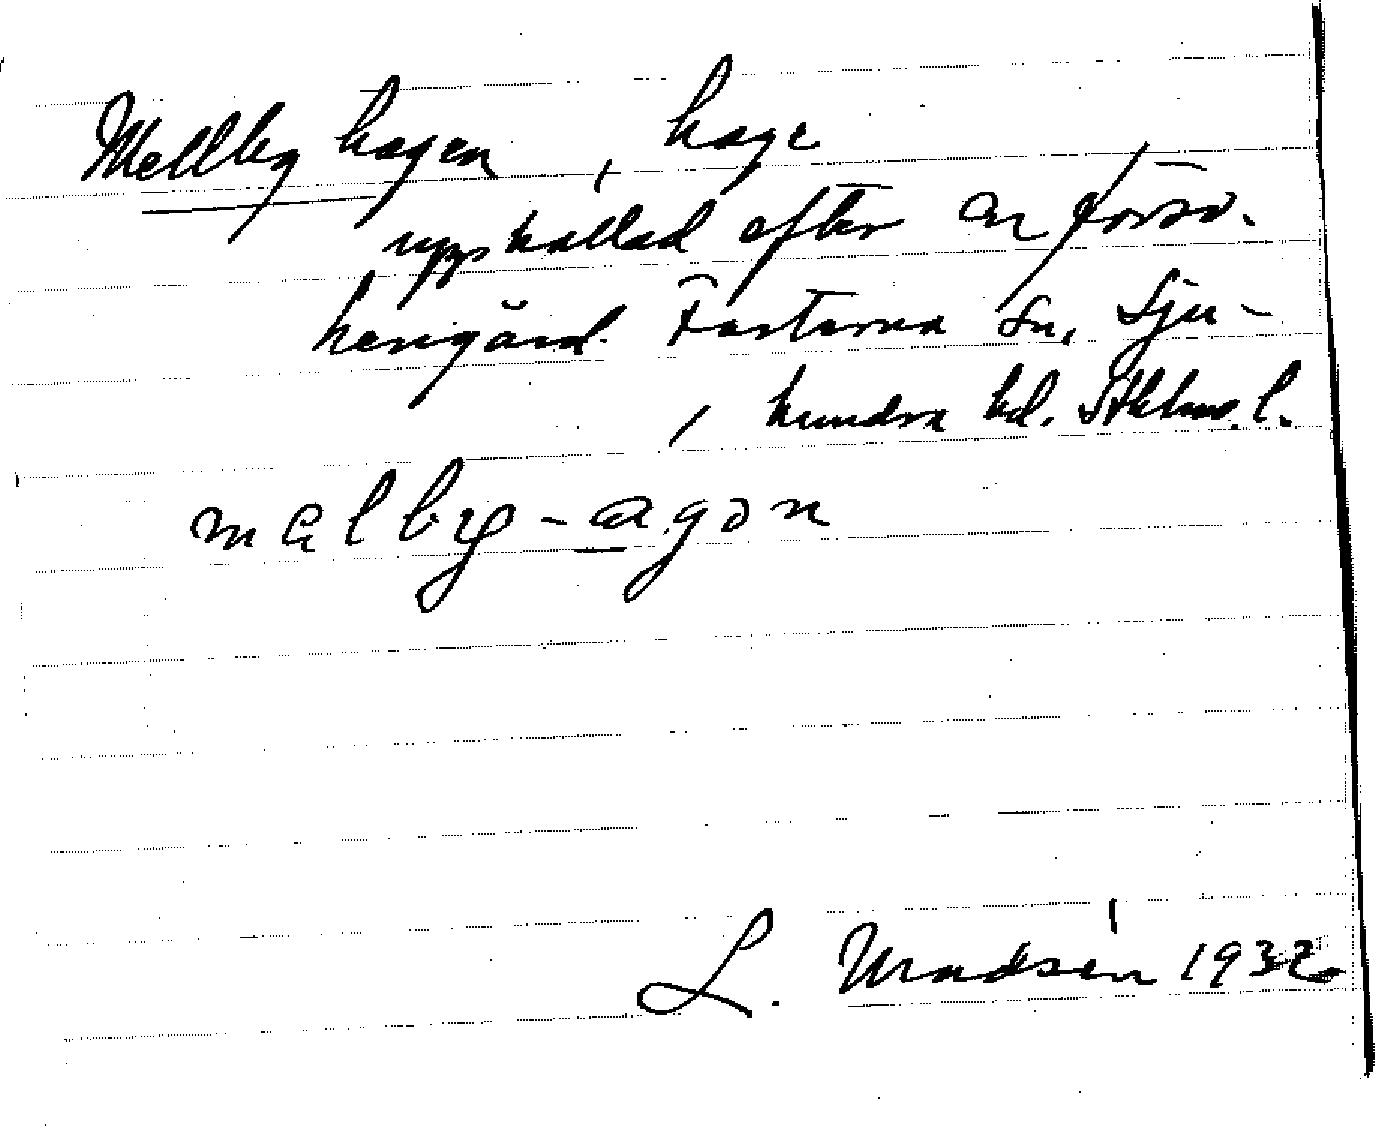 Mellby hagen, hage
uppkallad efter en försv.
herrgård. Fasterna sn, Sju-
hundra hd. Sthlms. l.
melby-agan
L. 1932